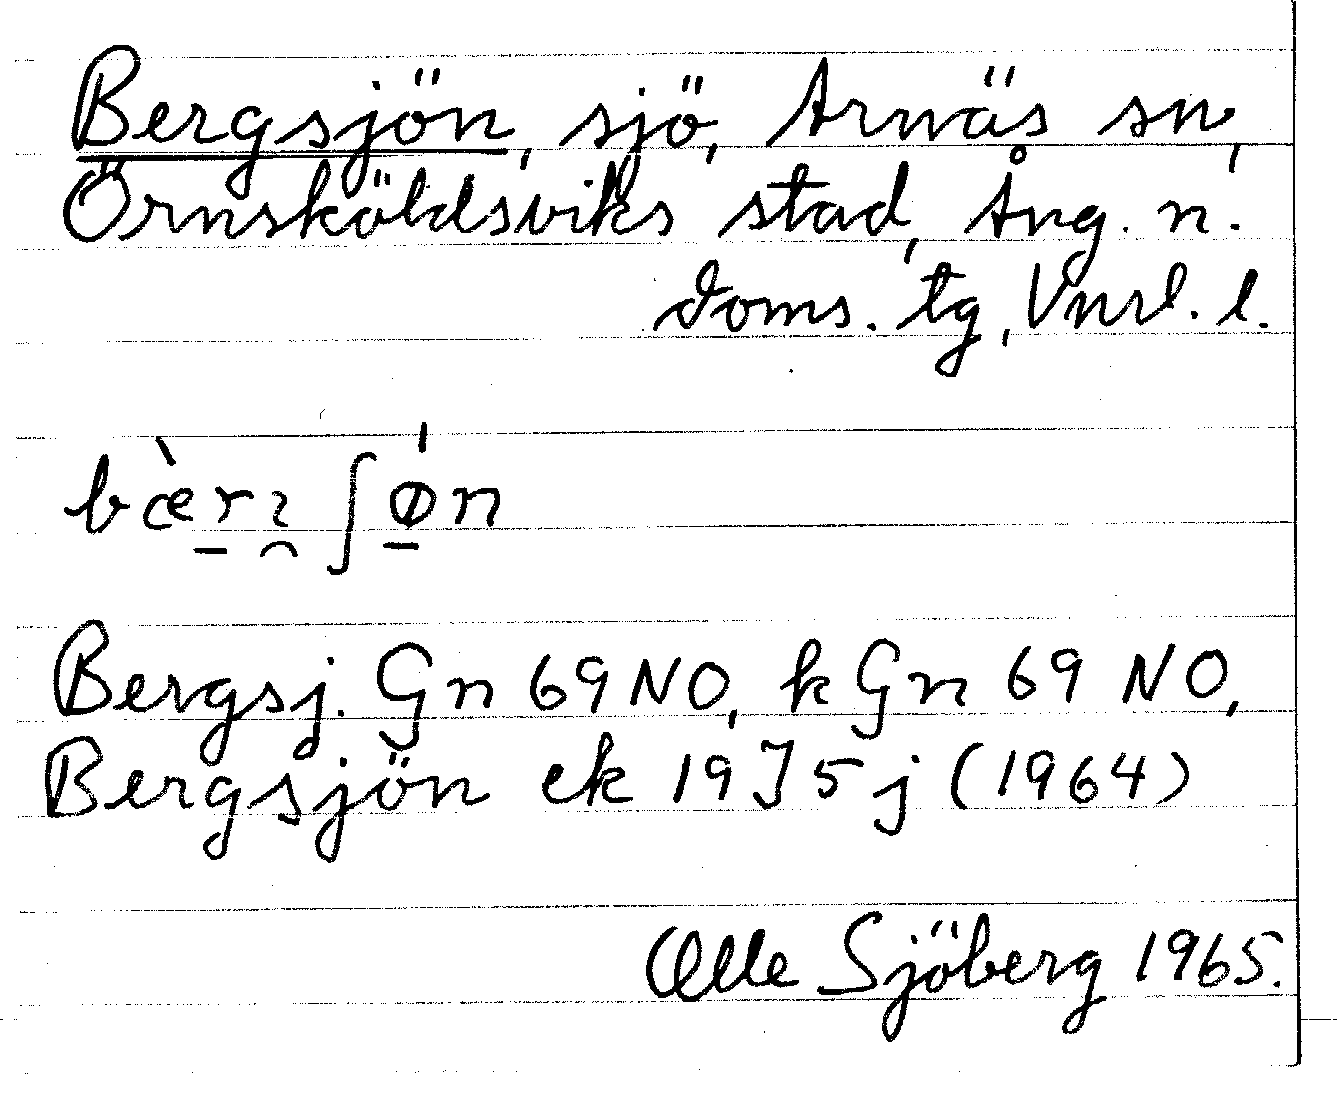 Bergsjön, sjö, Arnäs sn,
Örnsköldsviks stad, Ång. n.
doms. tg, Vnrl. l.
Bergsj. Gn 69 NO, k Gn 69 NO,
Bergsjön ek 19J5j (1964)
Olle Sjöberg 1965.